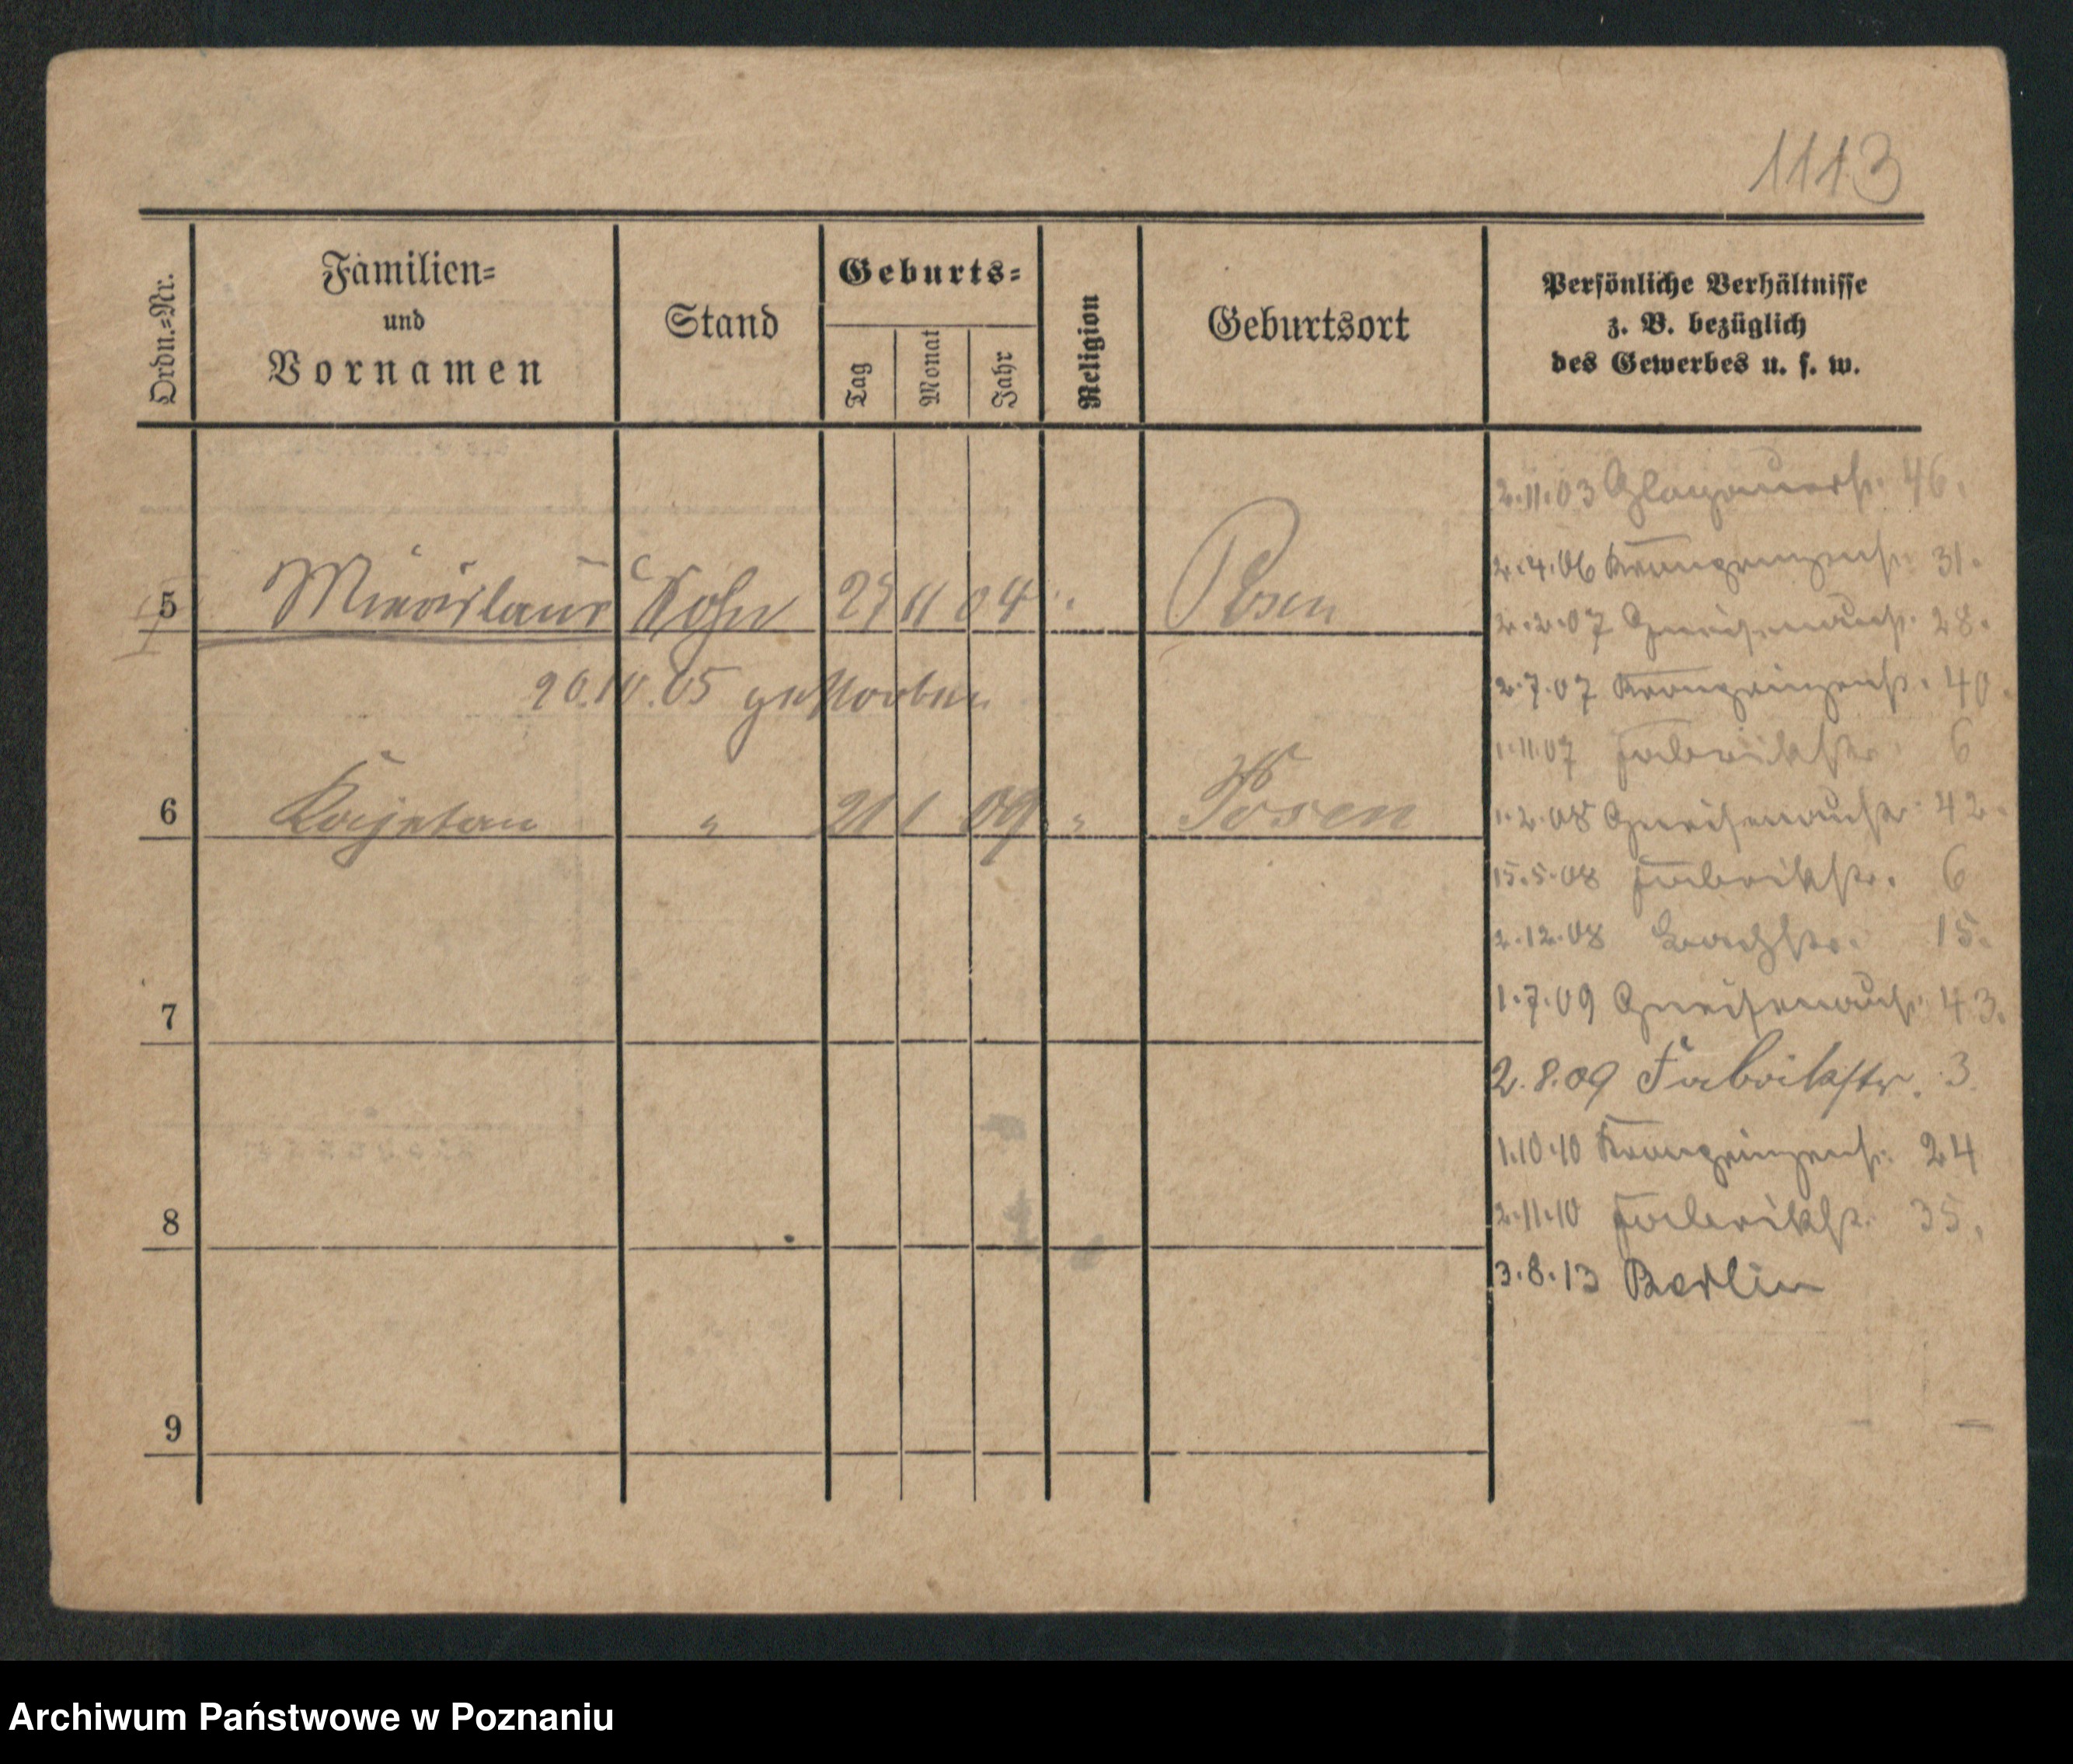 1113
Ordn.-Nr.
Familien-
und
Vornamen
Stand
Geburts-
Tag
Monat
Jahr
Religion
Geburtsort
Persönliche Verhältnisse
z. B. bezüglich
des Gewerbes u. s. w.
2.11.03 Glogauerstr. 46.
2.4.06 Kronprinzenstr. 31.
5 Miecislaus Sohn 11 04 " Posen
2.2.07 Gneisenaustr. 28.
20.10.05 gestorben
2.7.07 Kronprinzenstr. 40.
1.11.07 Fabrikstr. 6
6 Kajetan " 21 1 09 " Posen
1.2.08 Gneisenaustr. 42.
15.5.08 Fabrikstr. 6
2.12.08 Bachstr. 15.
7
1.7.09 Gneisenaustr. 43.
2.8.09 Fabrikstr. 3.
1.10.10 Kronprinzenstr. 24
8
2.11.10 Fabrikstr. 35.
3.8.13 Berlin
9
Archiwum Państwowe w Poznaniu